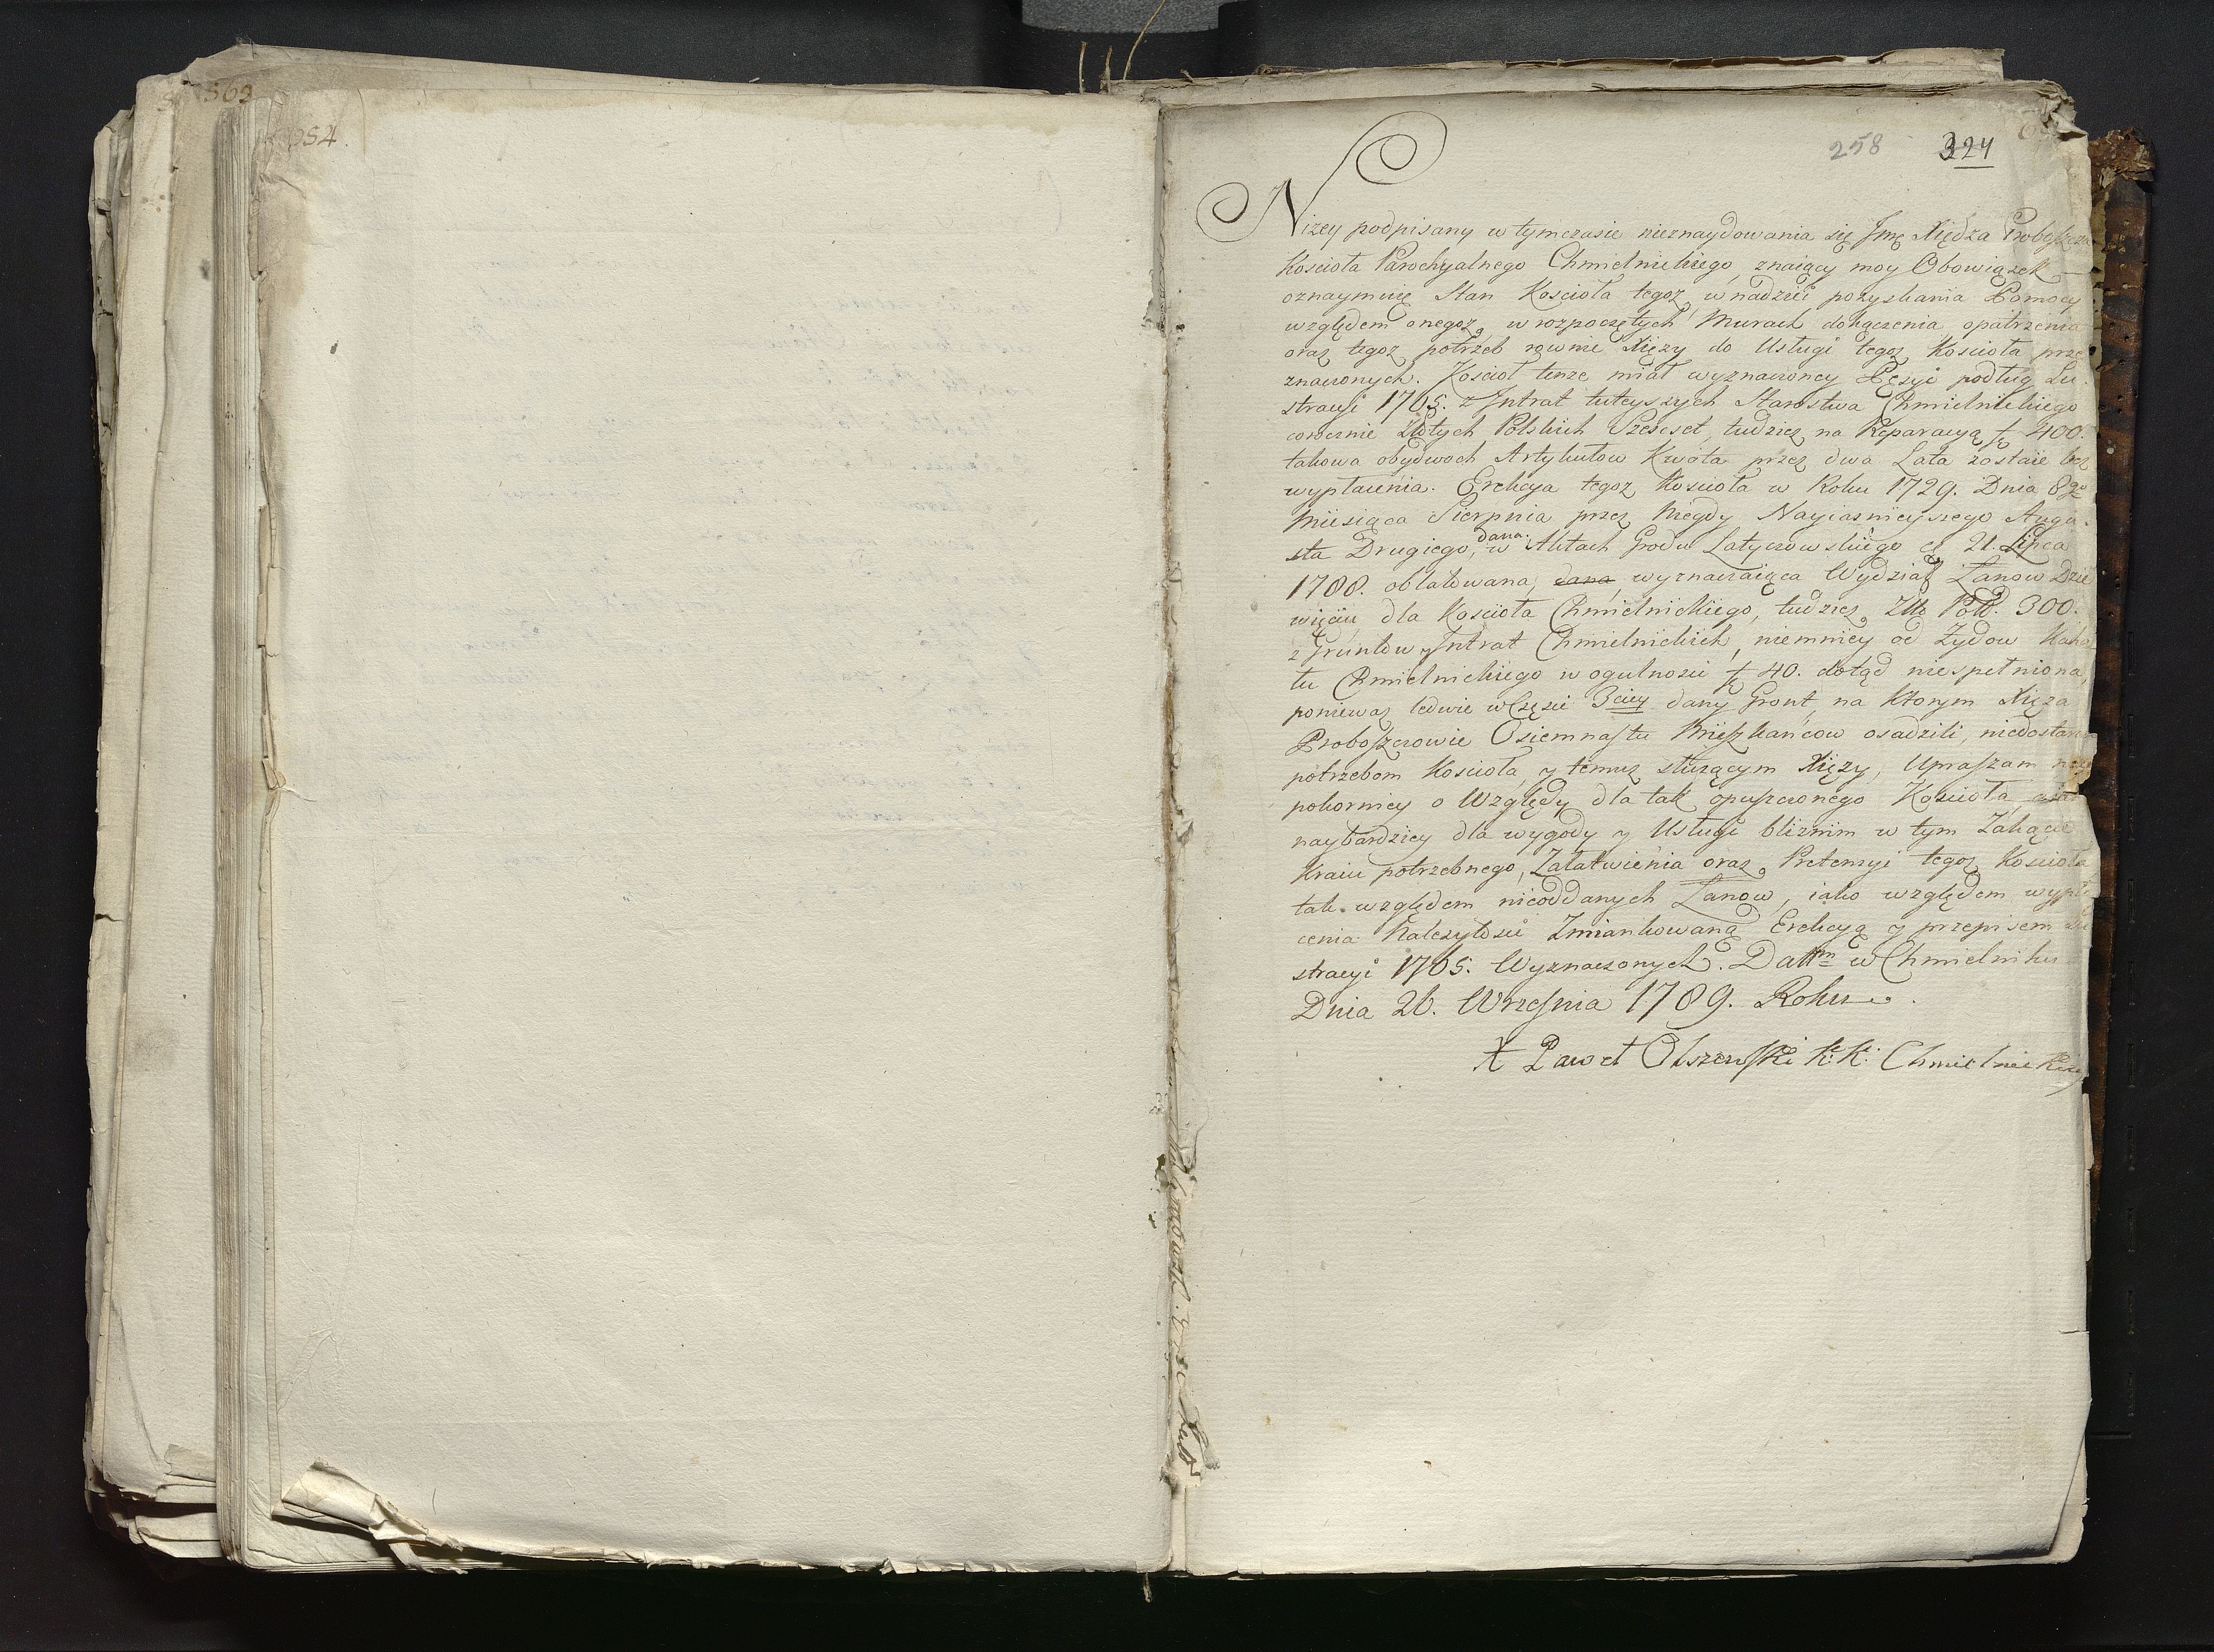 569
054.
258 324
Nizey podpisany w tymczasie nieznaydowania się Jmę Xiędza Proboszcza
Kościoła Parochyalnego Chmielnickiego, znaiący moy Obowiązek
oznaymuię Stan Kościoła tegoż, w nadziei pozyskania Pomocy
względem onegoż, w rozpoczętych Murach dokączenia, opatrzenia
oraz tegoż potrzeb rownie Xięzy do Usługi tegoż Kościoła prze
znaczonych. Kościoł tenze miał wyznaczoney Pęsyi podług Lu-
stracyi 1765. z Intrat tuteyszych Starostwa Chmielnickiego
corocznie Złotych Polskich Szescset, tudziez na Reparacyą 400.
takowa obydwoch Artykułow Kwota przez dwa Lata zostaie bez
wypłacenia. Erekcya tegoż Kościoła w Roku 1729. Dnia 8go
Miesiąca Sierpnia przez Niegdy Nayiasnieyszego Augu-
sta Drugiego, dana w Aktach Grodu Latyczowskiego 21. Lipca
1788. oblatowana, dana, wyznaczaiąca Wydział Łanow Dzie
więciu dla Kościoła Chmielnickiego, tudziez Złł Poll. 300.
z Gruntow y Intrat Chmielnickich, niemniey od Zydow Kaha
łu Chmielnickiego w ogulnosci 40. dotąd niespełniona,
poniewaz ledwie w Częsci 3ciey dany Gront, na Ktorym Xięza
Proboszczowie Osiemnastu Mieszkańcow osadzili, niedostar
potrzebom Kościoła, y temuz słuzącym Xięzy, Upraszam
pokorniey o Względy dla tak opuszczonego Kościoła,
naybardziey dla wygody y Usługi bliznim w tym Zakącie
Kraiu potrzebnego, Załatwienia oraz Pretensyi tegoż Kościoła
tak względem nieoddanych Łanow, iako względem wypła
cenia Należytosci Zmiankowaną Erekcyą y przepisem Lu
stracyi 1765. Wyznaczonych. Dattm w Chmielniku
Dnia 26. Wrzesnia 1789. Roku.
X Paweł Olszewski K: K: Chmielnicki